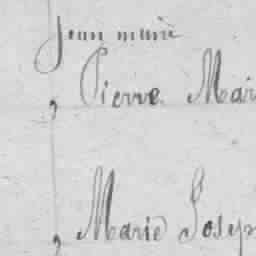 Jean marie
, Pierre Mar
, Marie Josep